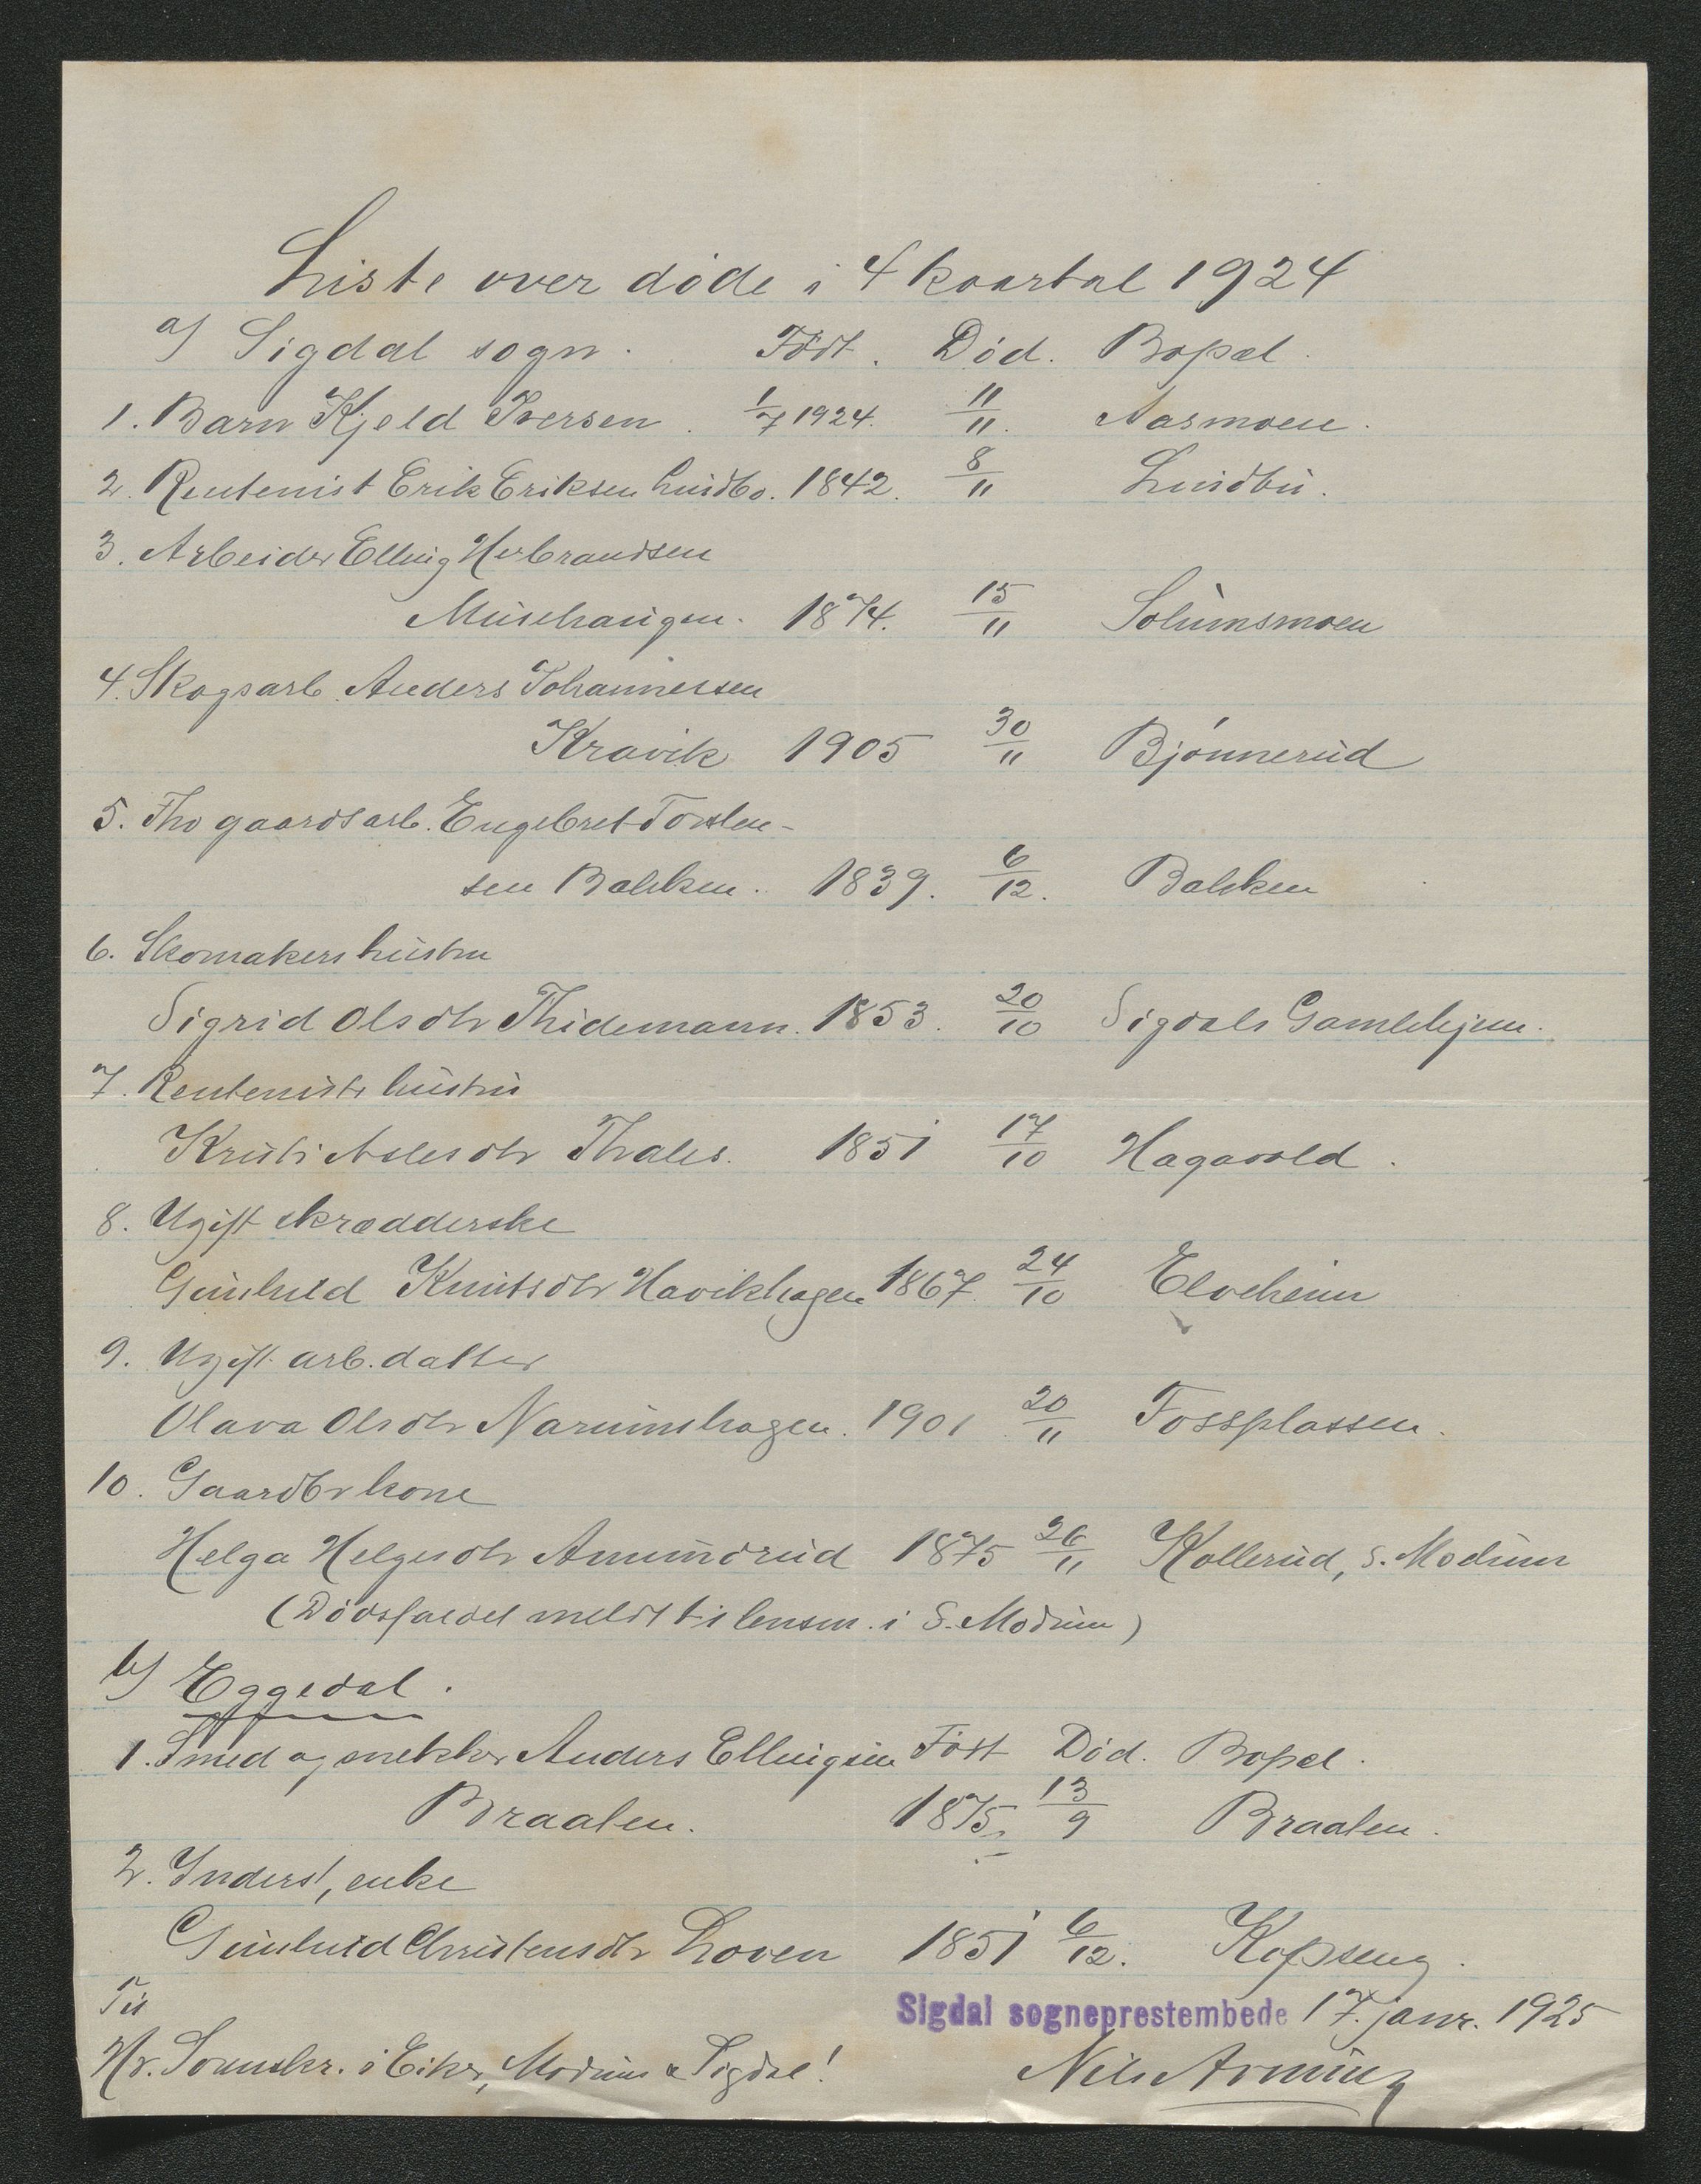 Liste over døde i 4 kvartal 1924
a) Sigdal sogn. Født. Død. Bopæl.
1. Barn Kjeld Iversen. 1/7 1924. 11/11. Aasmoen.
2. Rentenist Erik Eriksen Lindbo. 1842. 8/11 Lindbu.
3. Arbeider Elling Herbrandsen
Musehaugen. 1874. 15/11 Solumsmoen
4. Skogsarb. Anders Johannessen
Kravik 1905 30/11 Bjønnerud
5. Fhv gaardsarb. Engebret Torsten-
sen Bakken. 1839. 6/12. Bakken
6. Skomakers hustru
Sigrid Olsdtr Thidemann. 1853. 20/10 Sigdals Gamlehjem.
7. Rentenists hustru
Kristi Aslesdtr Thrales. 1851 17/10 Hagavold.
8. Ugift skrædderske
Gunhild Knutsdtr Havikhagen 1867. 24/10 Elveheim
9. Ugift arb.datter
Olava Olsdtr Narumshagen. 1901 20/11 Fossplassen.
10. Gaardbr kone
Helga Helgesdtr Amundrud 1875 26/11 Kollerud, S. Modum
(Dødsfaldet meldt til lensm. i S. Modum)
b) Eggedal.
1. Smed og snekker Anders Ellingsen Født Død. Bopæl.
Braaten. 1875. 13/9 Braaten.
2. Inderst, enke
Gunhild Christensdtr Loven 1851 6/12. Kopseng.
Til
Hr. Sorenskr. i Eiker, Modum & Sigdal!
Sigdal sogneprestembede 17. janr. 1925
Nils